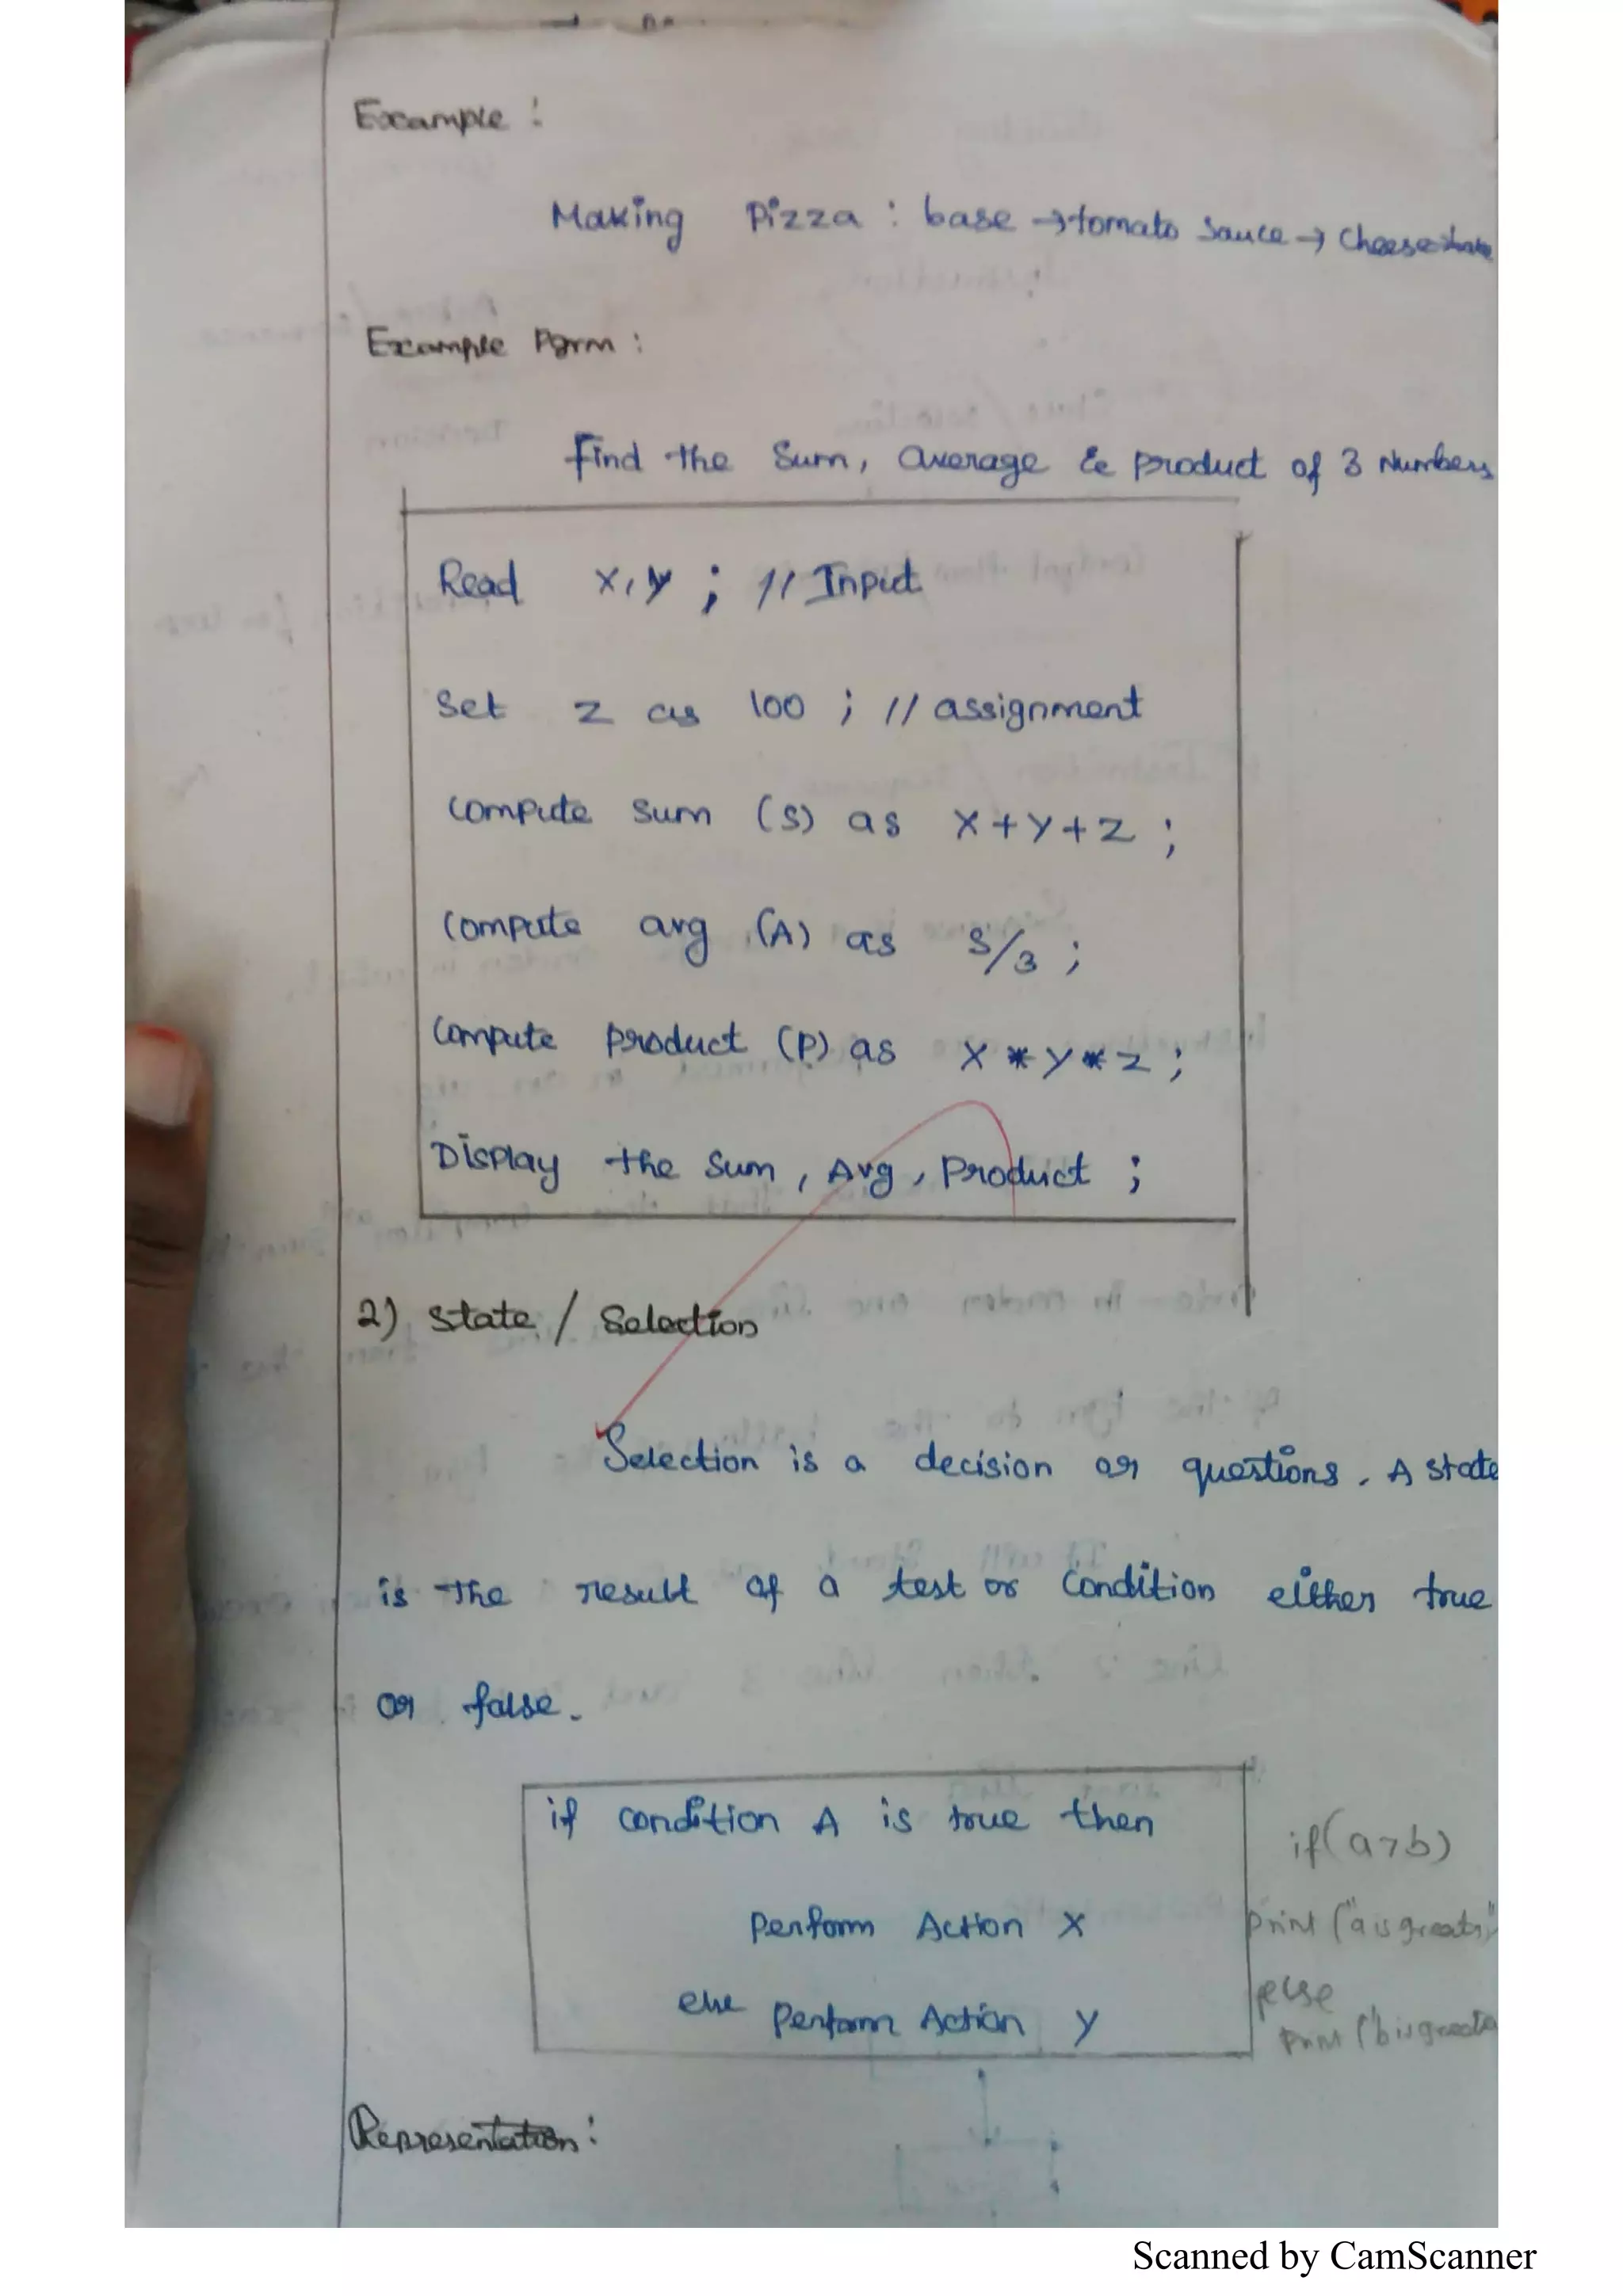 Example :
Making Pizza : base → tomato sauce → cheese
Example Pgrm :
Find the Sum, average & product of 3 Numbers
Read x, y ; // Input
Set z as 100 ; // assignment
Compute sum (S) as x + y + z ;
Compute avg (A) as S/3 ;
Compute product (P) as x * y * z ;
Display the Sum, Avg, Product ;
2) State / Selection
Selection is a decision or questions. A state
is the result of a test or Condition either true
or false.
if condition A is true then
if (a>b)
Perform Action X
print ("a is greater"
else
else Perform Action Y
print ("b is greater
Representation :
Scanned by CamScanner